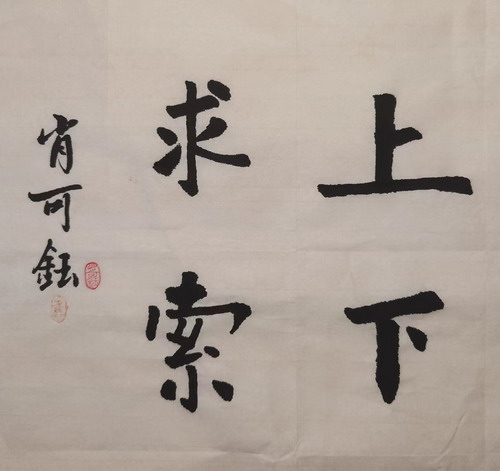 上下
求索
肖可鈺